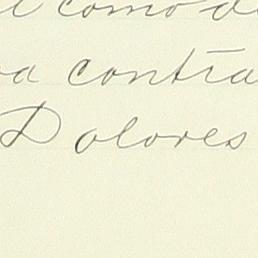 como d
a contra
Dolores